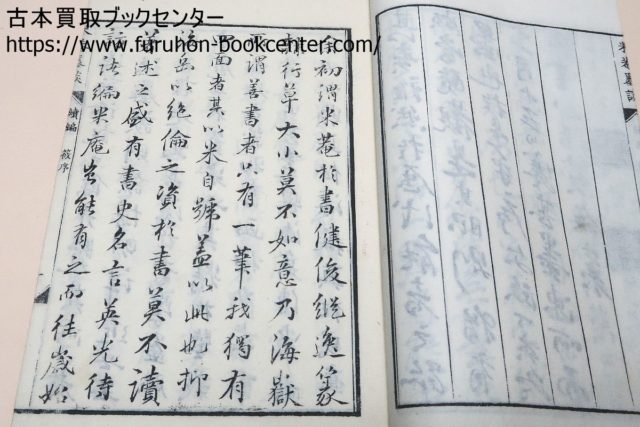 古本買取ブックセンター
https://www.furuhon-bookcenter.com/
米菴墨談
余初謂米菴於書健俊縱逸篆
隷行草大小莫不如意乃海嶽
所謂善書者只有一筆我獨有
四面者其以米自號蓋以此也抑
海岳以絶倫之資於書莫不讀
著述之盛有書史名言英光待
訪諸編米庵豈能有之而往歳始
續編 筱序